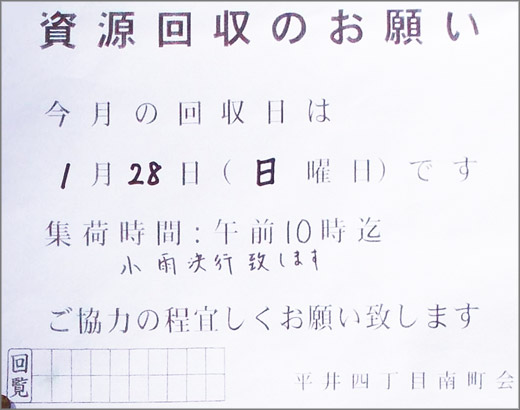 資源回収のお願い
今月の回収日は
1月28日(日曜日)です
集荷時間:午前10時迄
小雨決行致します
ご協力の程宜しくお願い致します
回覧
平井四丁目南町会